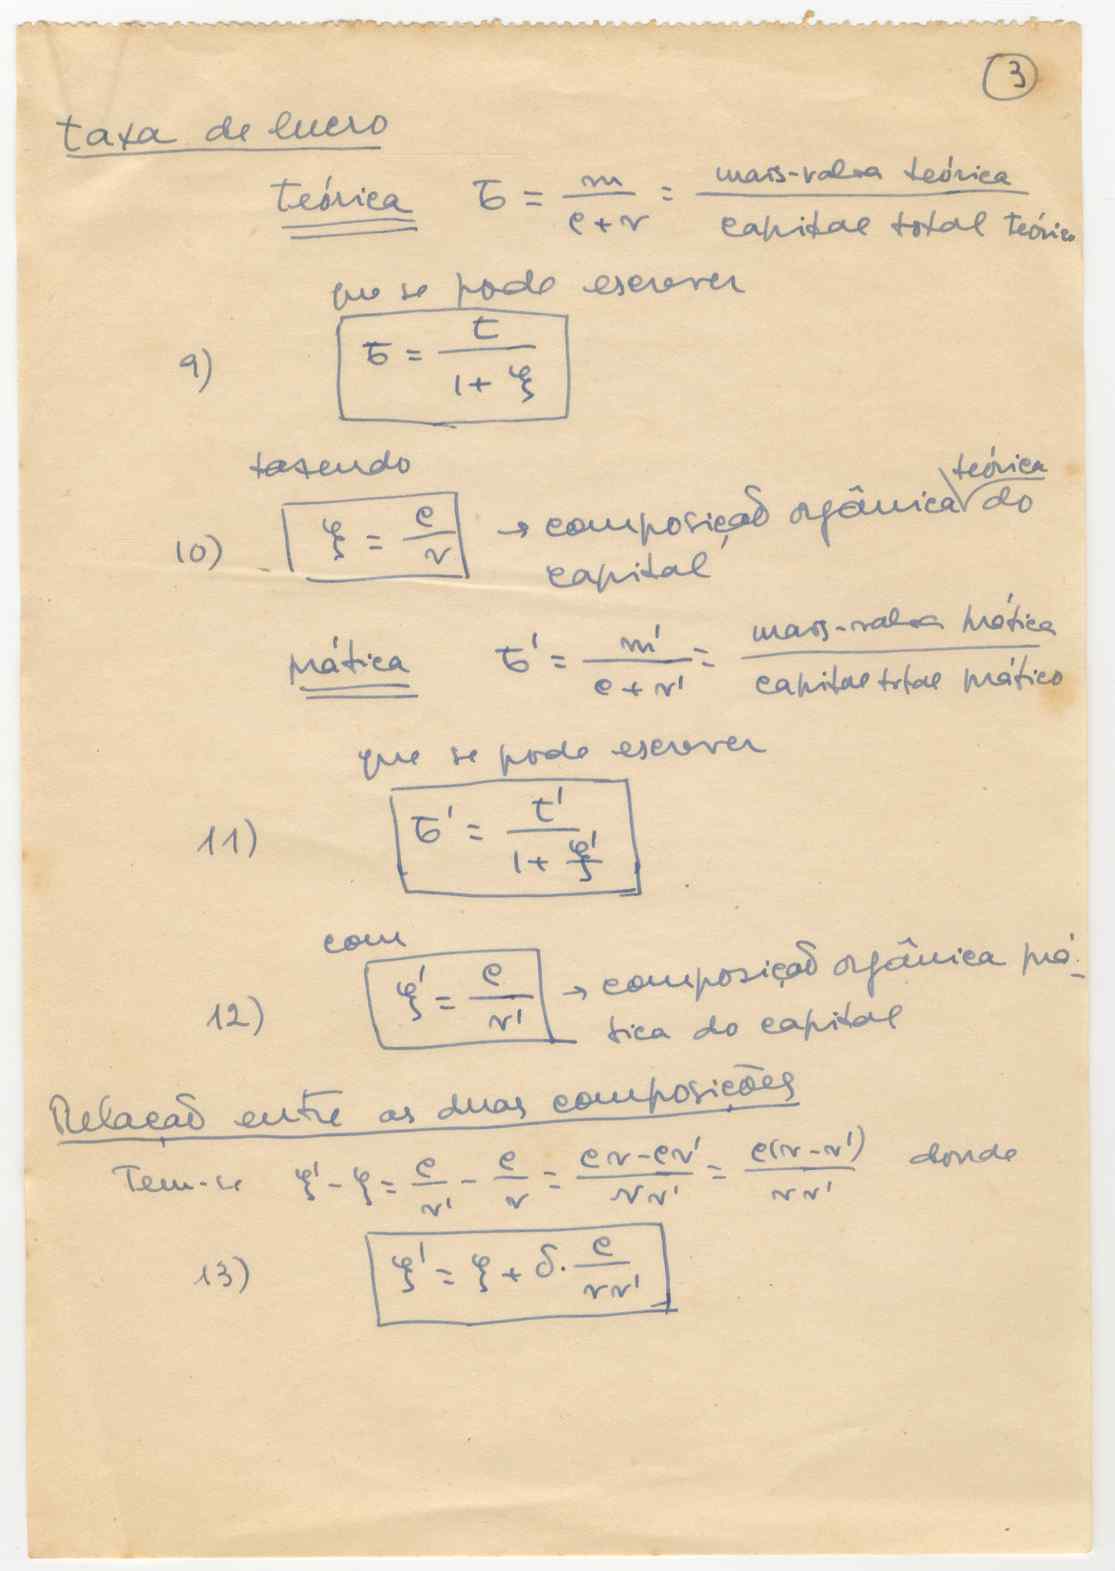 3
taxa de lucro
teórica σ = m/(c+v) = mais-valia teórica/capital total teórico
que se pode escrever
9) σ = t/(1+ξ)
fazendo
teórica
10) ξ = c/v → composição orgânica do
capital
prática σ' = m'/(c+v') = mais-valia prática/capital total prático
que se pode escrever
11) σ' = t'/(1+ξ')
com
12) ξ' = c/v' → composição orgânica prá-
tica do capital
Relação entre as duas composições
Tem-se ξ'-ξ = c/v' - c/v = (cv-cv')/(vv') = c(v-v')/(vv') donde
13) ξ' = ξ + δ. c/(vv')